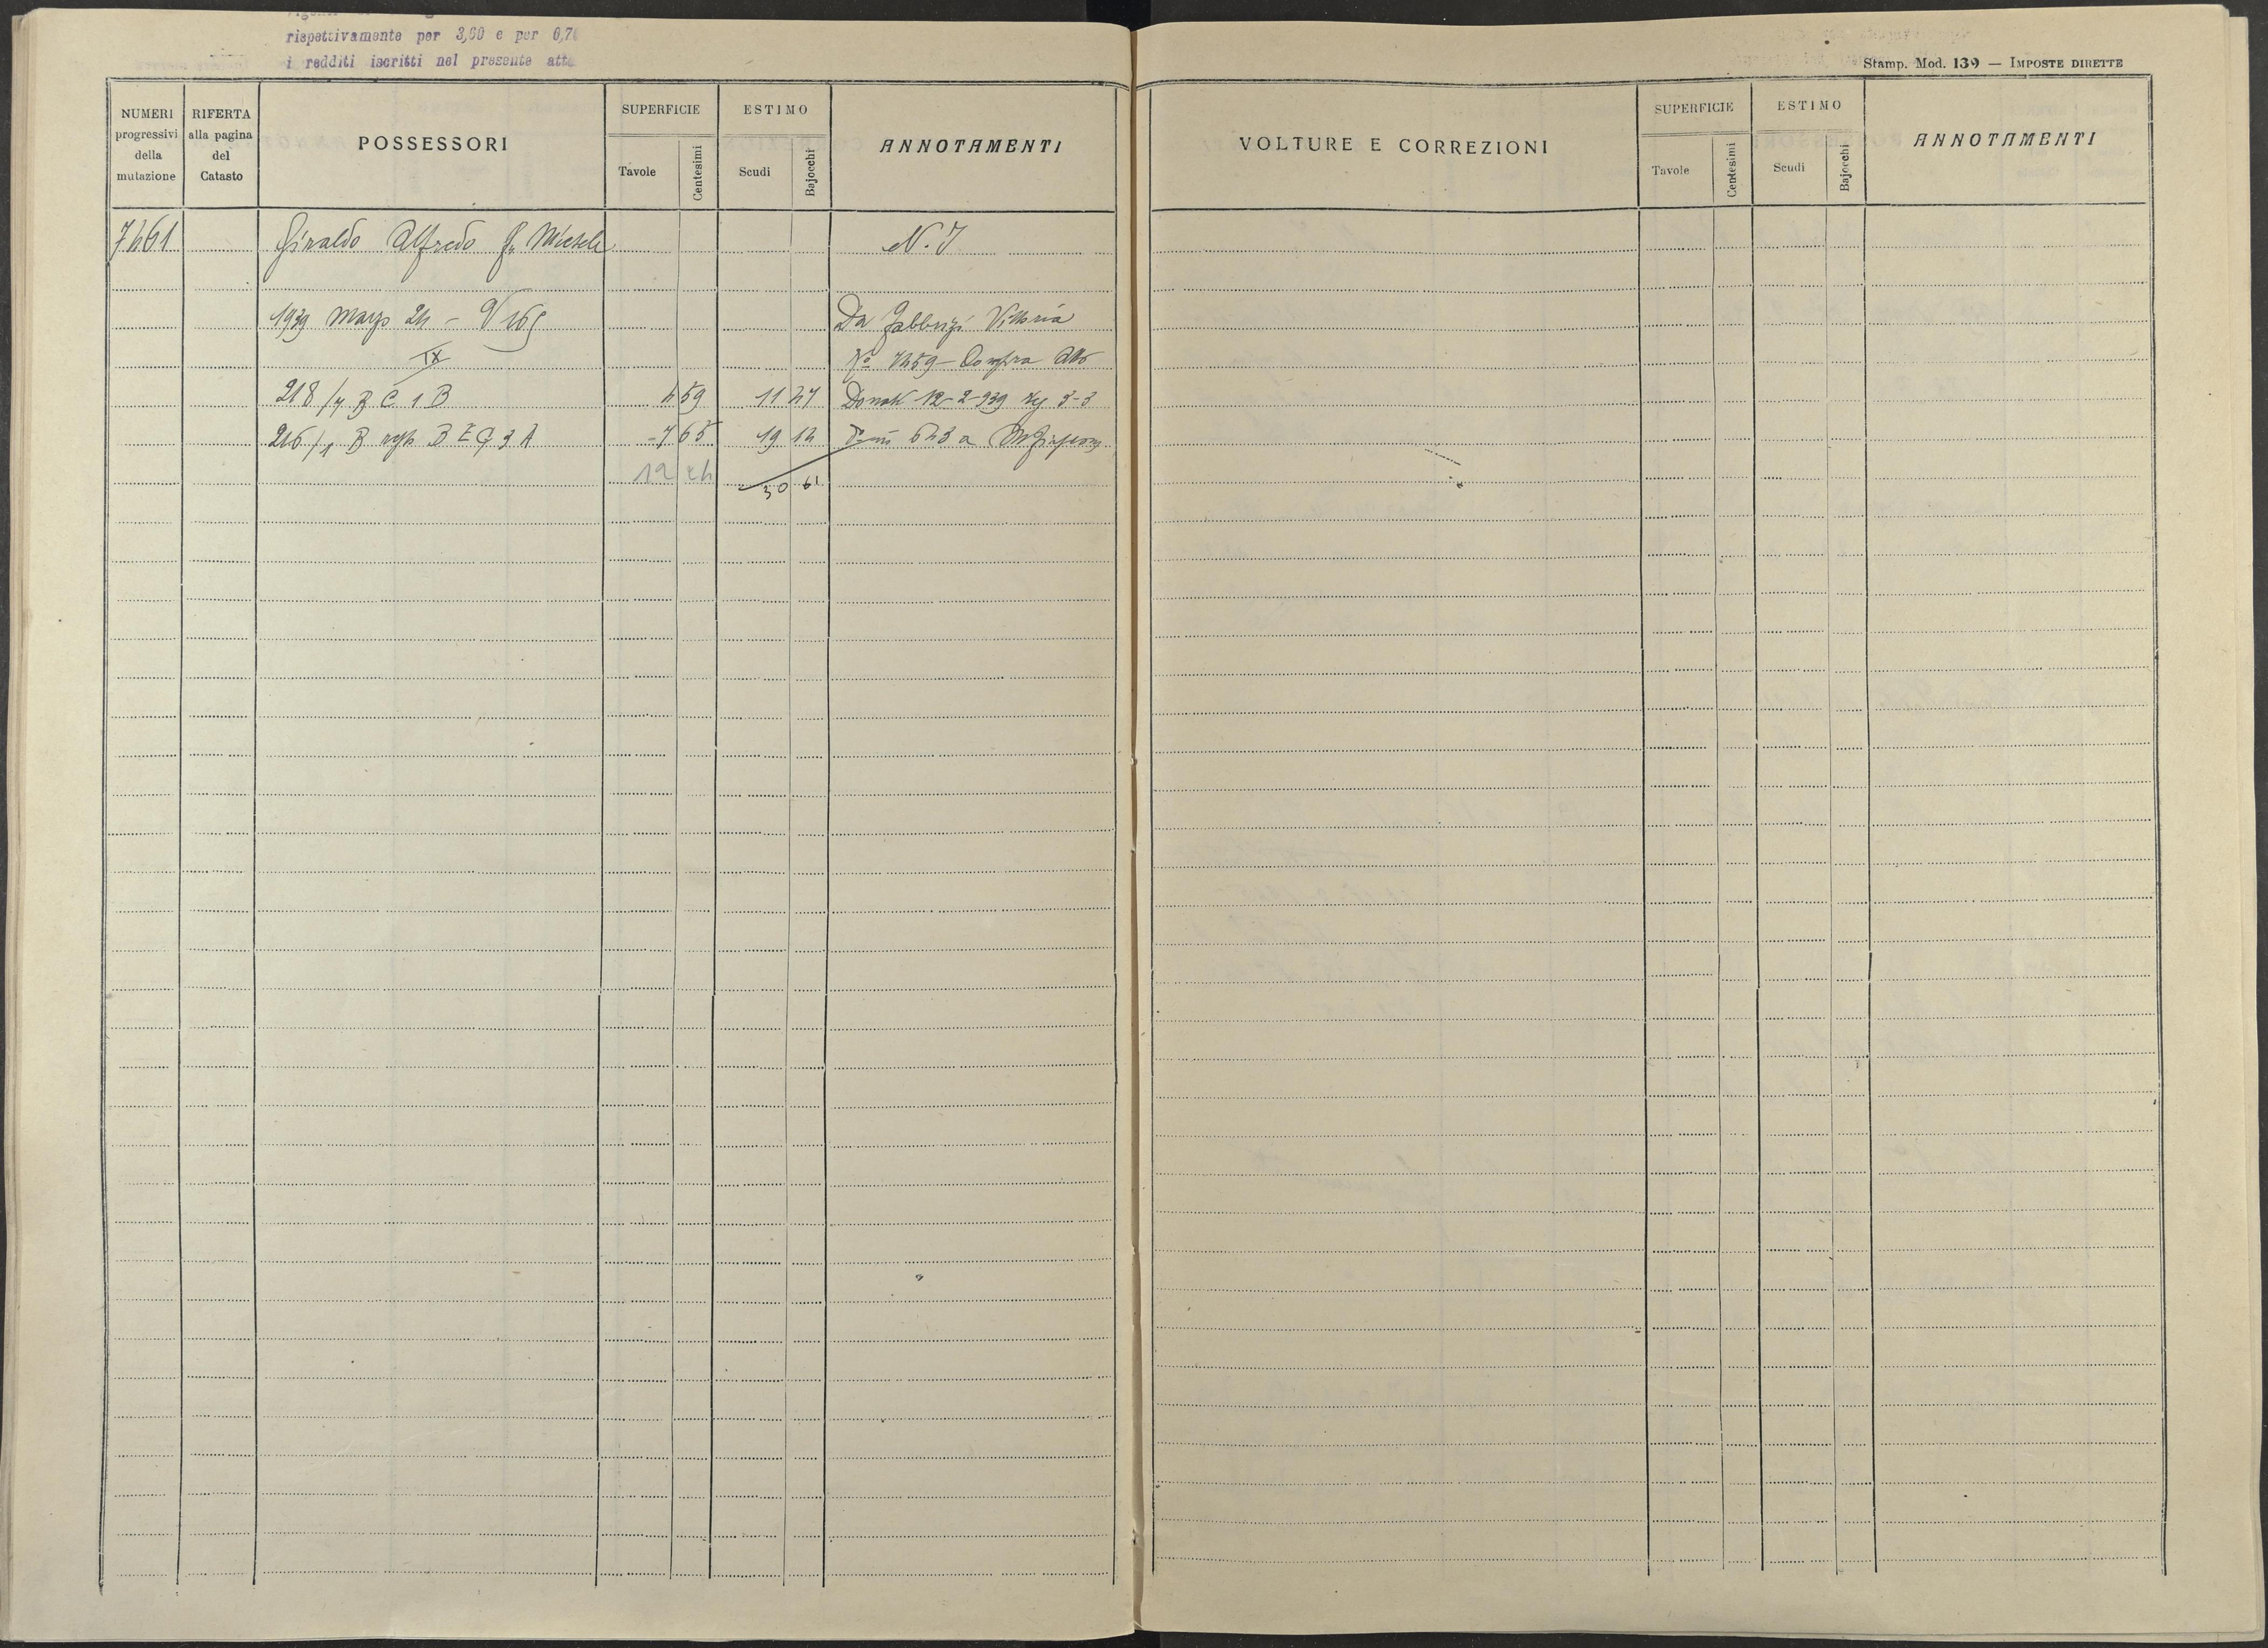 rispettivamente per 3,60 e per 0,7
i redditi iscritti nel presente att
Stamp. Mod. 139 — IMPOSTE DIRETTE
NUMERI progressivi della mutazione
RIFERTA alla pagina del Catasto
POSSESSORI
SUPERFICIE
Tavole
Centesimi
ESTIMO
Scudi
Bajocchi
ANNOTAMENTI
7461 Giraldo Alfredo fu Michele N. I
1939 Marzo 24 - V 165 Da Fabbrizi Vittoria
IX No 7459 - Compra Atto
218/7 B C 1 B 4 59 11 47 Donati 12-2-939 reg 3-3
216/1 B B E G 3 A 7 65 19 14 643 a
12 24 30 61
VOLTURE E CORREZIONI
SUPERFICIE
Tavole
Centesimi
ESTIMO
Scudi
Bajocchi
ANNOTAMENTI